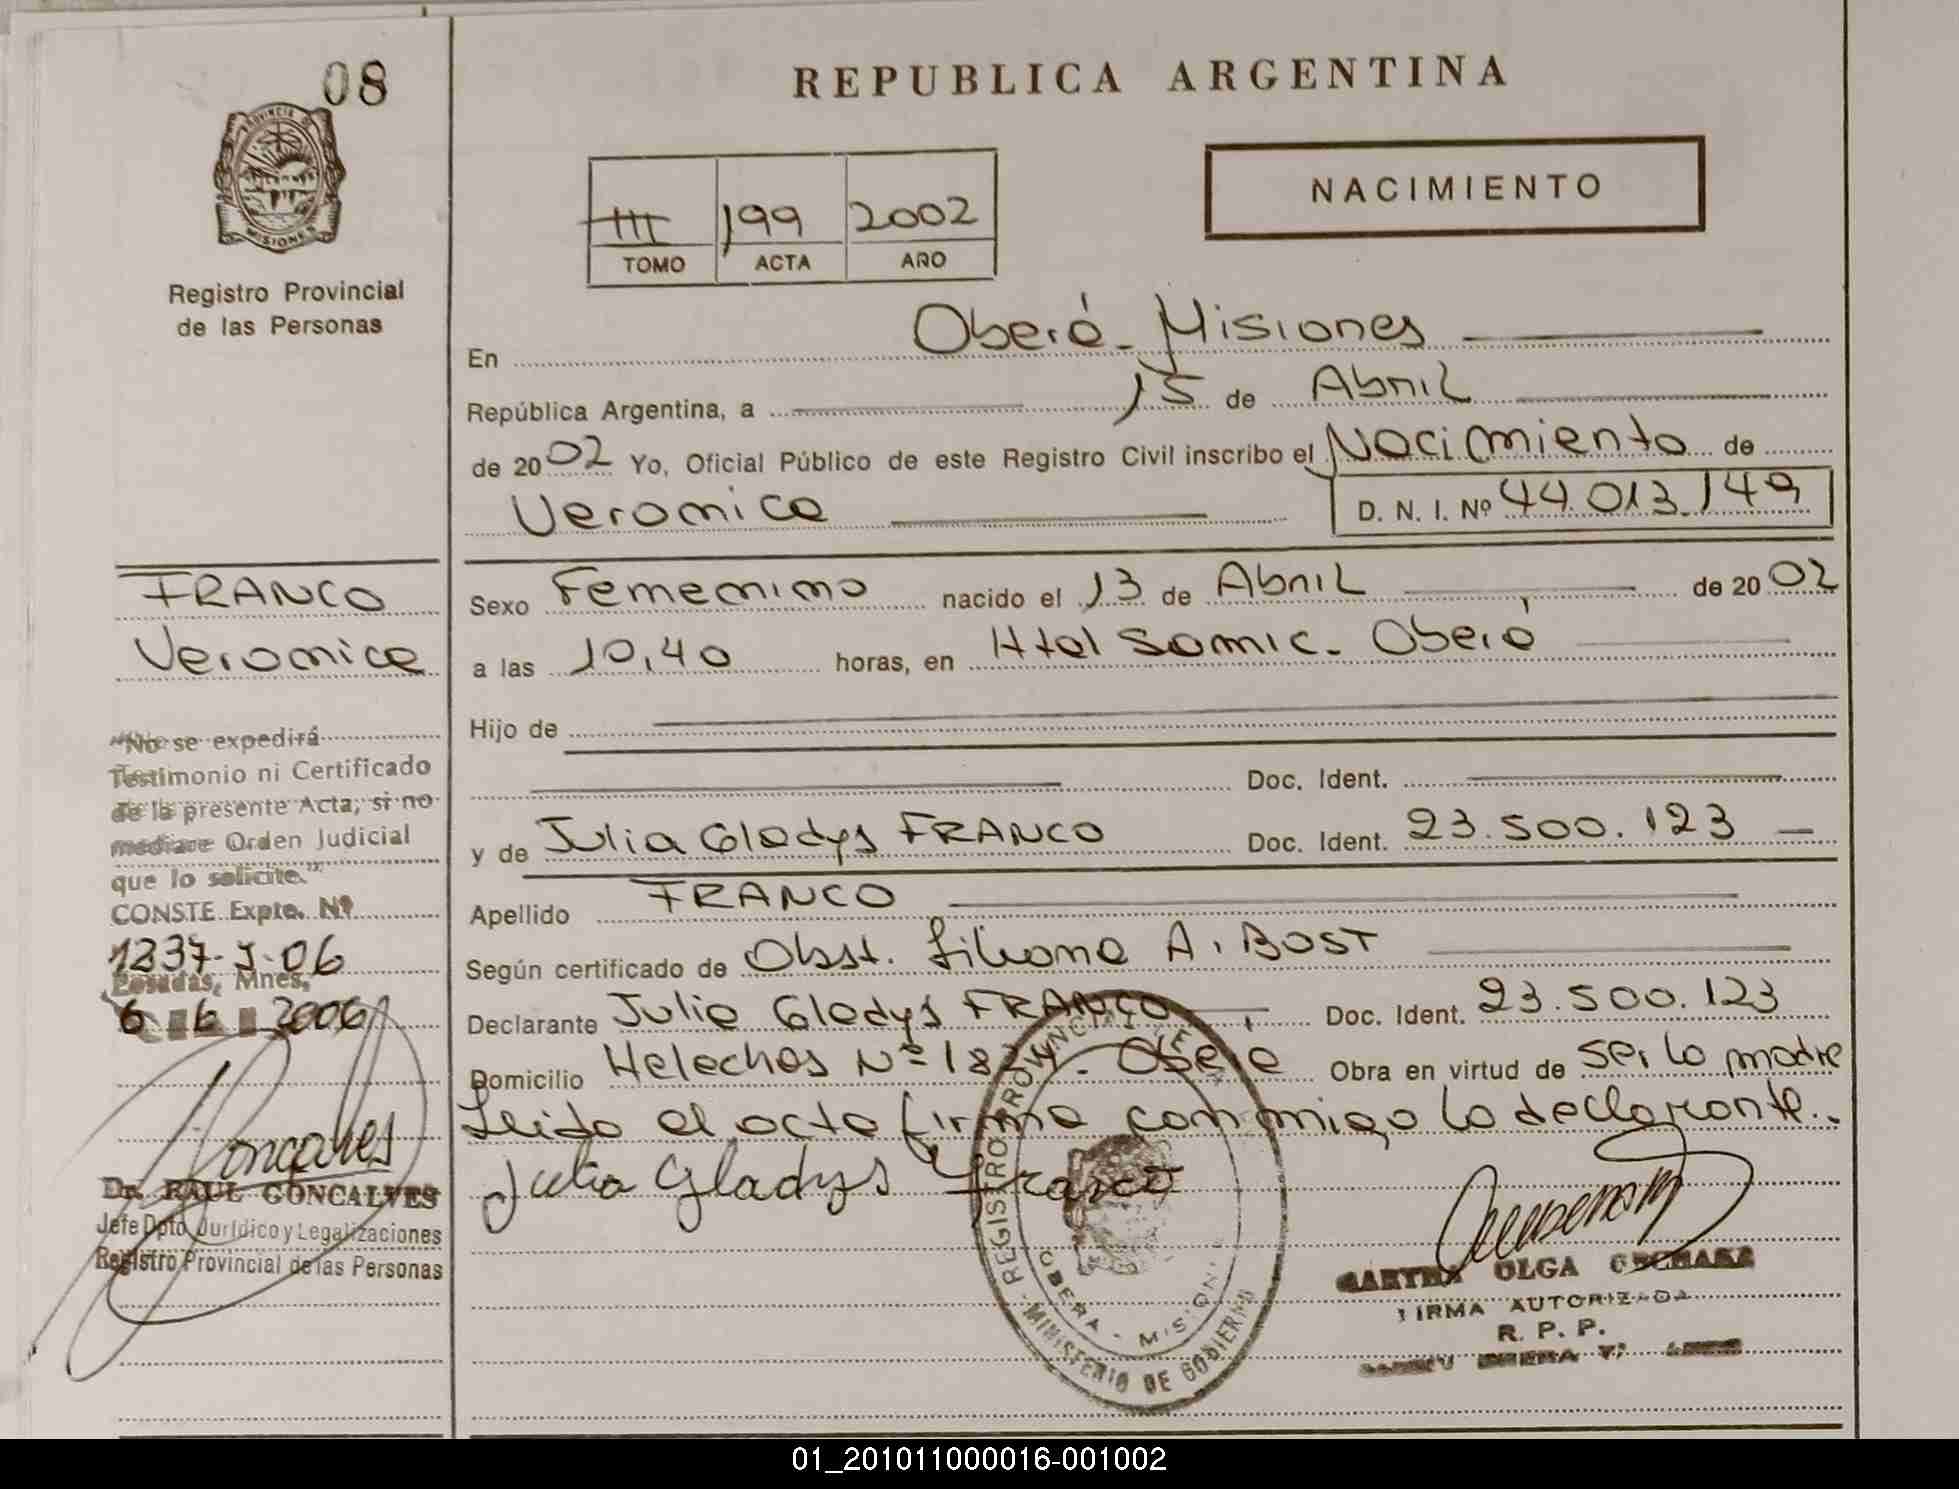 08
PROVINCIA DE
MISIONES
Registro Provincial
de las Personas
REPUBLICA ARGENTINA
III 199 2002
TOMO ACTA AÑO
NACIMIENTO
En Oberá - Misiones
República Argentina, a 15 de Abril
de 2002 Yo, Oficial Público de este Registro Civil inscribo el Nacimiento de
Veronica D. N. I. Nº 44.013.149
FRANCO
Veronica
Sexo Femenino nacido el 13 de Abril de 2002
a las 10,40 horas, en Htal Samic - Oberá
Hijo de
Doc. Ident.
y de Julia Gladys FRANCO Doc. Ident. 23.500.123
Apellido FRANCO
Según certificado de Obst. Liliana A. BOST
Declarante Julia Gladys FRANCO Doc. Ident. 23.500.123
Domicilio Helechos Nº 1834 - Oberá Obra en virtud de ser la madre
Leida el acta firma conmigo la declarante.
Julia Gladys Franco
"No se expedirá
Testimonio ni Certificado
de la presente Acta, si no
mediare Orden Judicial
que lo solicite."
CONSTE Expte. Nº
1237-J-06
Posadas, Mnes,
6 6 2006
Goncalves
Dr. RAUL GONCALVES
Jefe Dpto Jurídico y Legalizaciones
Registro Provincial de las Personas
REGISTRO PROVINCIAL DE LAS
OBERA - MISIONES
MINISTERIO DE GOBIERNO
OLGA
FIRMA AUTORIZADA
R. P. P.
01_201011000016-001002